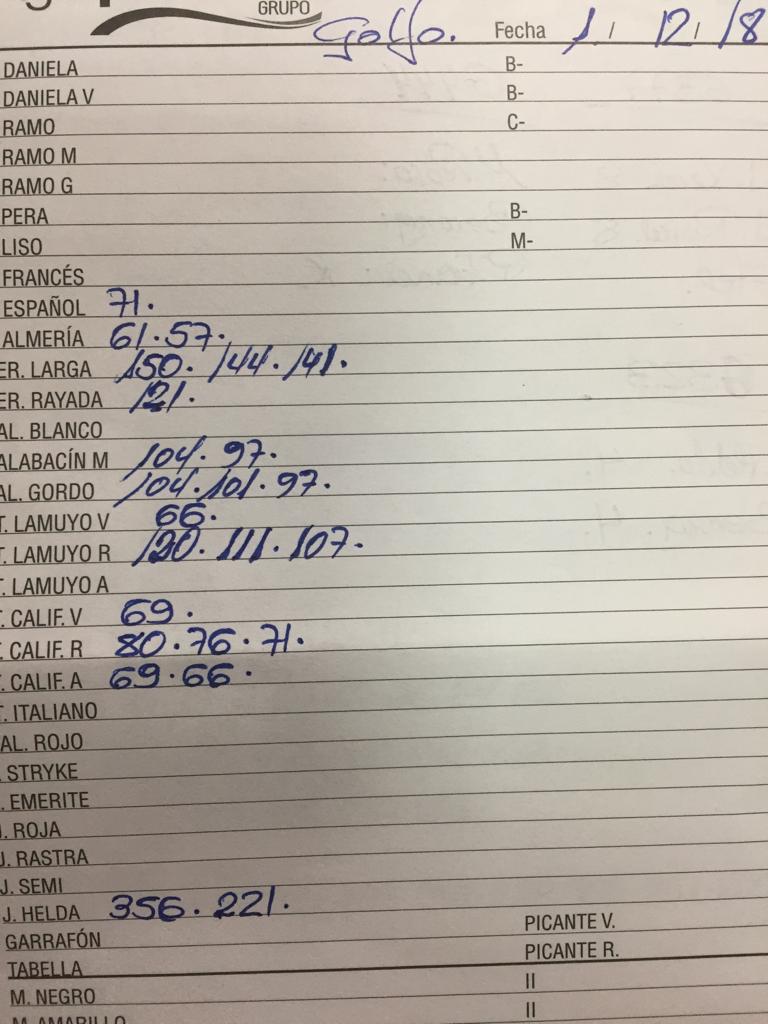 GRUPO
Golfo. Fecha 1 / 12 / 18
DANIELA B-
DANIELA V B-
RAMO C-
RAMO M
RAMO G
PERA B-
LISO M-
FRANCÉS
ESPAÑOL 71.
ALMERÍA 61.57.
ER. LARGA 150. 144. 141.
ER. RAYADA 121.
AL. BLANCO
ALABACÍN M 104. 97.
AL. GORDO 104.101.97.
T. LAMUYO V 66.
T. LAMUYO R 120. 111. 107.
T. LAMUYO A
. CALIF. V 69.
. CALIF. R 80.76.71.
. CALIF. A 69.66.
T. ITALIANO
AL. ROJO
. STRYKE
. EMERITE
J. ROJA
J. RASTRA
J. SEMI
J. HELDA 356. 221.
GARRAFÓN PICANTE V.
TABELLA PICANTE R.
M. NEGRO II
M. AMARILLO II